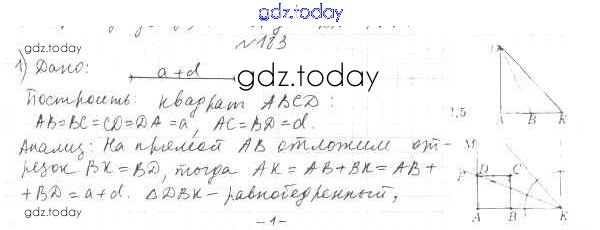 gdz.today
gdz.today
№183
1) Дано: a+d
gdz.today
Построить: квадрат ABCD:
AB=BC=CD=DA=a, AC=BD=d.
Анализ: На прямой AB отложим от-
резок BK=BD, тогда AK=AB+BK=AB+
+BD=a+d. △DBK - равнобедренный,
gdz.today
-1-
B K
M
P D C
A B K
gdz.today
gdz.today